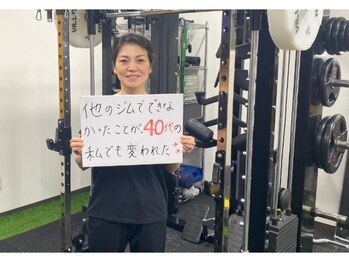 他のジムでできな
かったことが、40代の
私でも変われた